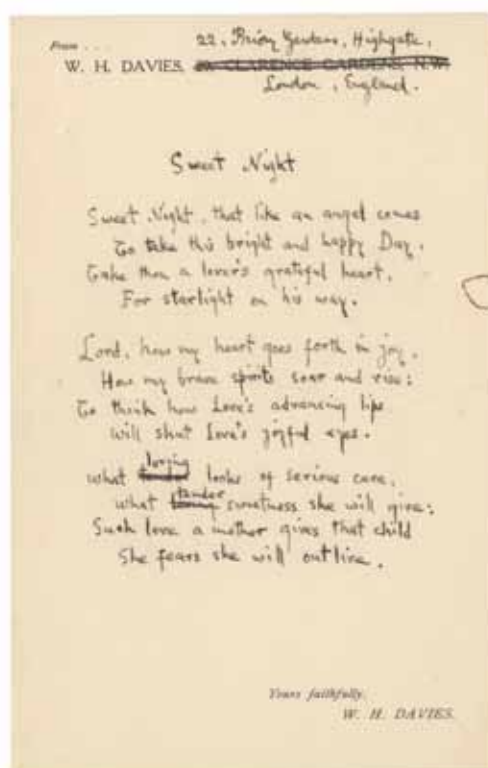 From . . .
22, Priory Gardens, Highgate,
W. H. DAVIES, CLARENCE GARDENS, N.W.
London, England.
Sweet Night
Sweet Night, that like an angel comes
To take this bright and happy Day,
Take thou a lover's grateful heart,
For starlight on his way.
Lord, how my heart goes forth in joy,
How my brave spirits soar and rise:
To think how Love's advancing lips
Will shut Love's joyful eyes.
What tender loving looks of serious care,
What loving tender sweetness she will give:
Such love a mother gives that child
She fears she will outlive.
Yours faithfully,
W. H. DAVIES.